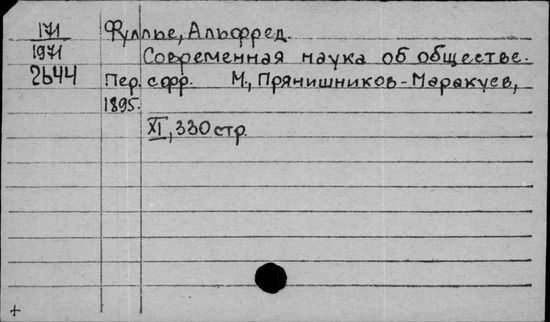 171 Фуллье, Альфред.
1971 Современная наука об обществе.
2644 Пер. с фр. М., Прянишников-Маракуев,
1895.
XI, 330 стр.
+